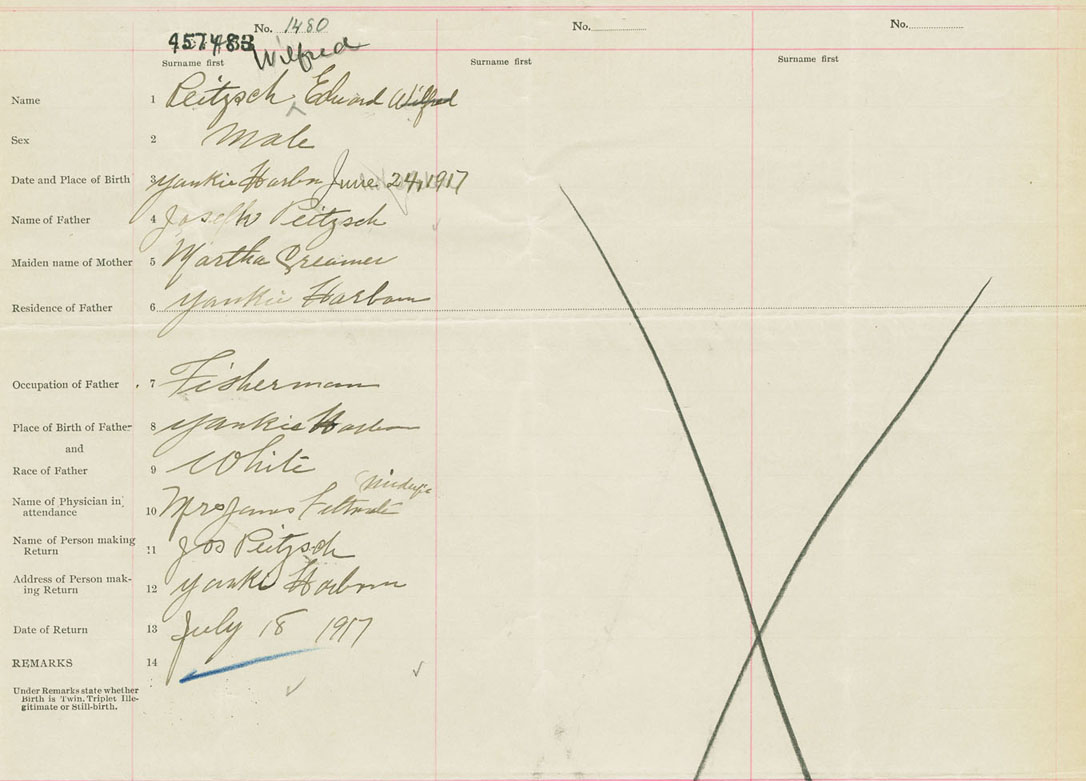 No. 1480 No. No.
457483 Wilfred
Surname first Surname first Surname first
Name 1 Peitzsch ^ Edward Wilfred
Sex 2 Male
Date and Place of Birth 3 Yankie Harbor June 24, 1917
Name of Father 4 Joseph Peitzsch
Maiden name of Mother 5 Martha Creamer
Residence of Father 6 Yankie Harbour
Occupation of Father 7 Fisherman
Place of Birth of Father 8 Yankie Harbour
and
Race of Father 9 White
midwife
Name of Physician in
attendance 10 Mrs James
Name of Person making
Return 11 Jos Peitzsch
Address of Person mak-
ing Return 12 Yankie Harbour
Date of Return 13 July 18 1917
REMARKS 14
Under Remarks state whether
Birth is Twin, Triplet Ille-
gitimate or Still-birth.